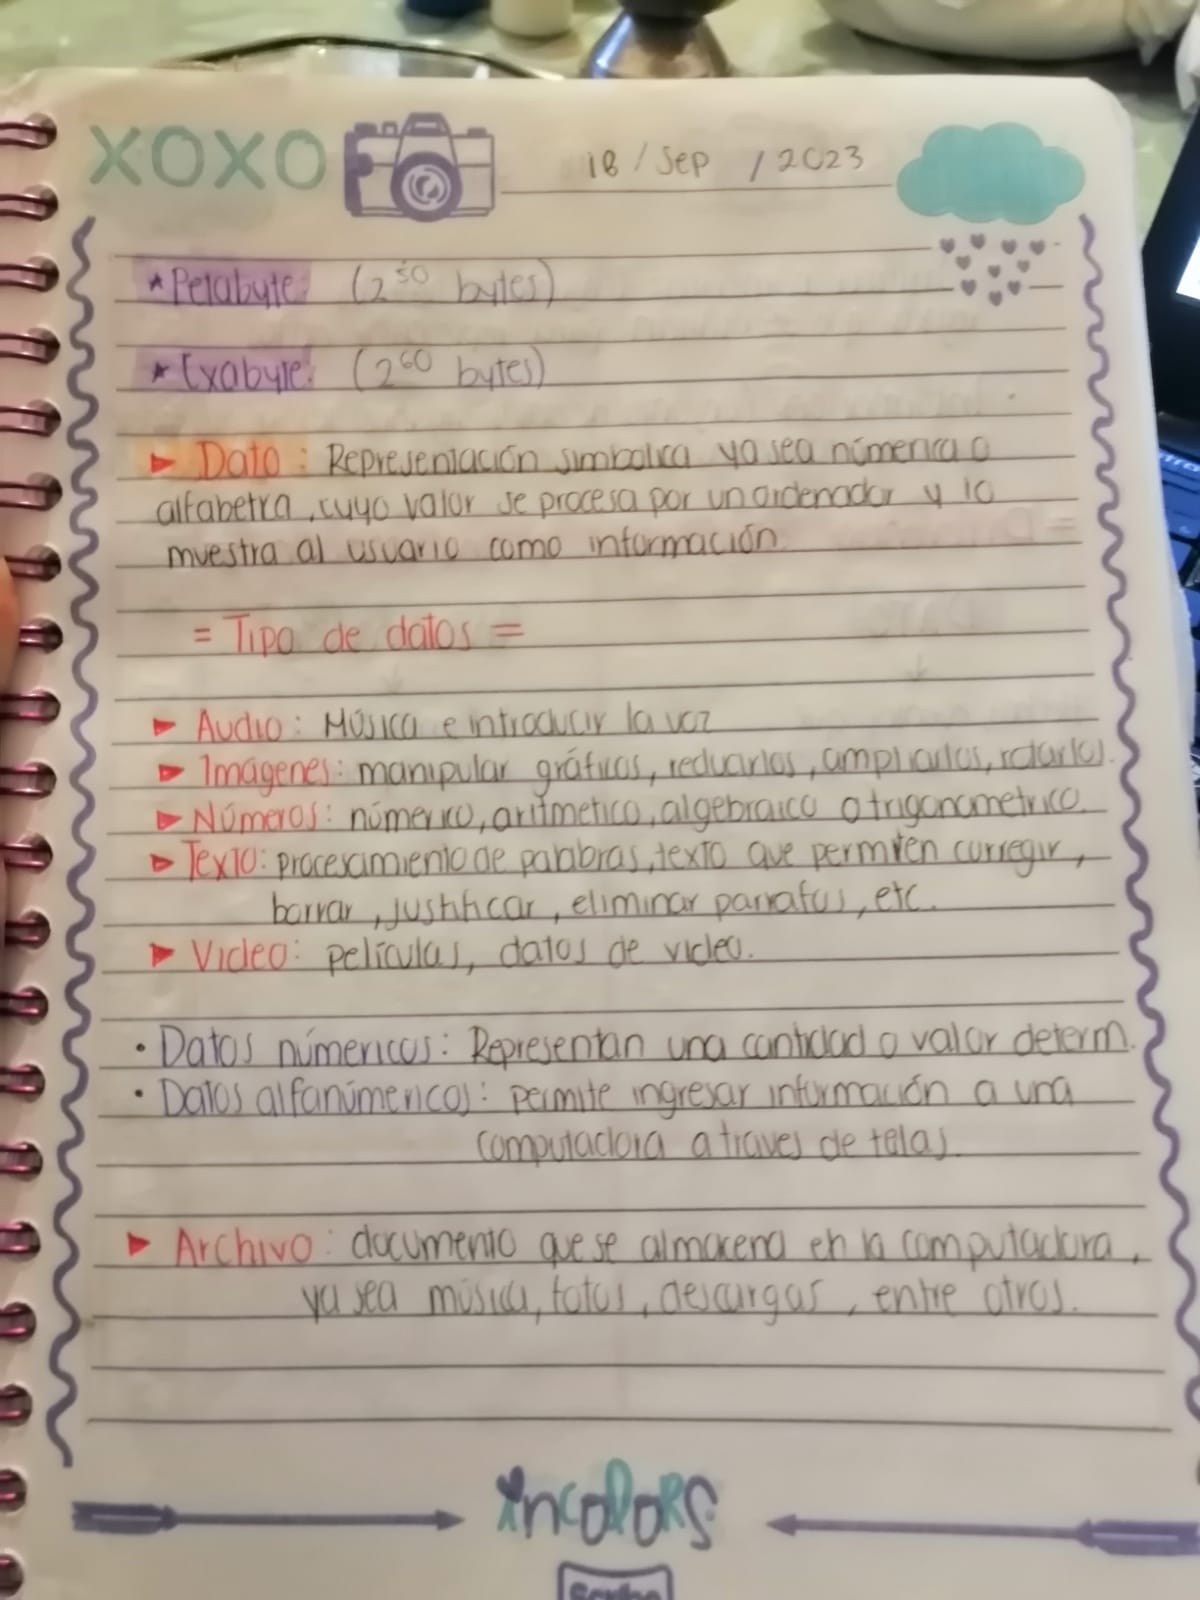 XOXO
18 / Sep / 2023
★ Petabyte: (2⁵⁰ bytes)
★ Exabyte: (2⁶⁰ bytes)
► Dato: Representación simbolica ya sea númerica o
alfabetica, cuyo valor se procesa por un ordenador y lo
muestra al usuario como información.
= Tipo de datos =
► Audio: Música e introducir la voz
► Imágenes: manipular gráficos, reducirlos, ampliarlos, rotarlos.
► Números: númerico, aritmetico, algebraico o trigonometrico.
► Texto: procesamiento de palabras, texto que permiten corregir,
borrar, justificar, eliminar parrafos, etc.
► Video: películas, datos de video.
• Datos númericos: Representan una cantidad o valor determ.
• Datos alfanúmericos: permite ingresar información a una
computadora a traves de telas.
► Archivo: documento que se almacena en la computadora,
ya sea música, fotos, descargas, entre otros.
incolors
Scribe